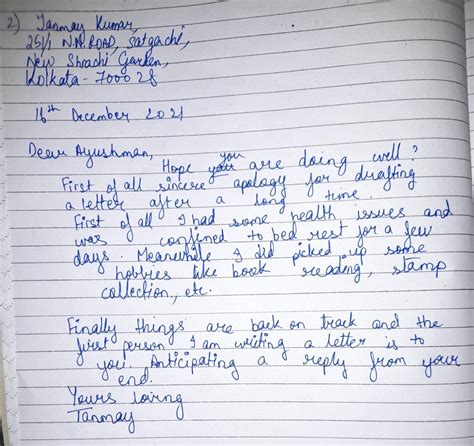 2) Tanmay Kumar,
25/1 N.N. ROAD, Satgachi,
New Shrachi Garden,
Kolkata - 700028
16th December 2021
Dear Ayushman,
Hope you are doing well?
First of all sincere apology for drafting
a letter after a long time.
First of all I had some health issues and
was confined to bed rest for a few
days. Meanwhile I did picked up some
hobbies like book reading, stamp
collection, etc.
Finally things are back on track and the
first person I am writing a letter is to
you. Anticipating a reply from your
end.
Yours loving
Tanmay